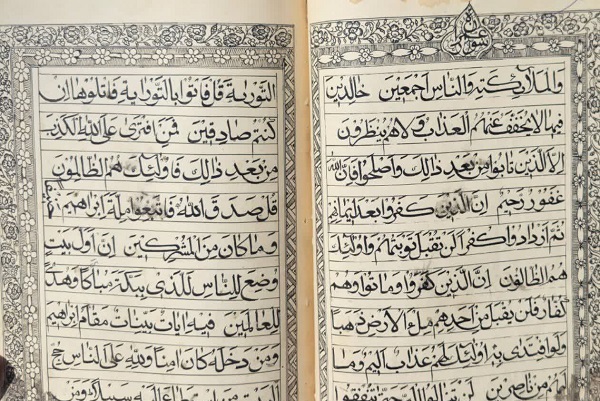 سورة عمران
والملائكة والناس اجمعين خالدين
فيها لا يخفف عنهم العذاب ولا هم ينظرون
الا الذين تابوا من بعد ذالك واصلحوا فان الله
غفور رحيم ان الذين كفروا بعد ايمانهم
ثم ازدادوا كفرا لن يقبل توبتهم واولئك
هم الظالون ان الذين كفروا وماتوا وهم
كفار فلن يقبل من احدهم ملء الارض ذهبا
ولو افتدى به اولئك لهم عذاب اليم وما
لهم من ناصرين لن تنالوا البر حتى تنفقوا
التورية قل فاتوا بالتوراية فاتلوها ان
كنتم صادقين فمن افترى على الله الكذب
من بعد ذالك فاولئك هم الظالمون
قل صدق الله فاتبعوا ملة ابراهيم
وما كان من المشركين ان اول بيت
وضع للناس للذى ببكة مباركا وهدى
للعالمين فيه ايات بينات مقام ابراهيم
ومن دخله كان امنا ولله على الناس حج
البيت من استطاع اليه سبيلا ومن